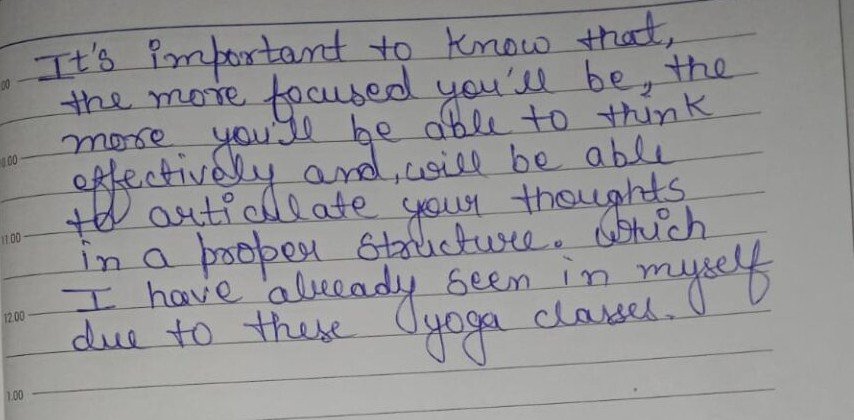 It's important to know that,
00
the more focused you'll be, the
more you'll be able to think
0.00
effectively and, will be able
to articulate your thoughts
11.00
in a proper structure. Which
I have already seen in myself
12.00
due to these yoga classes.
1.00